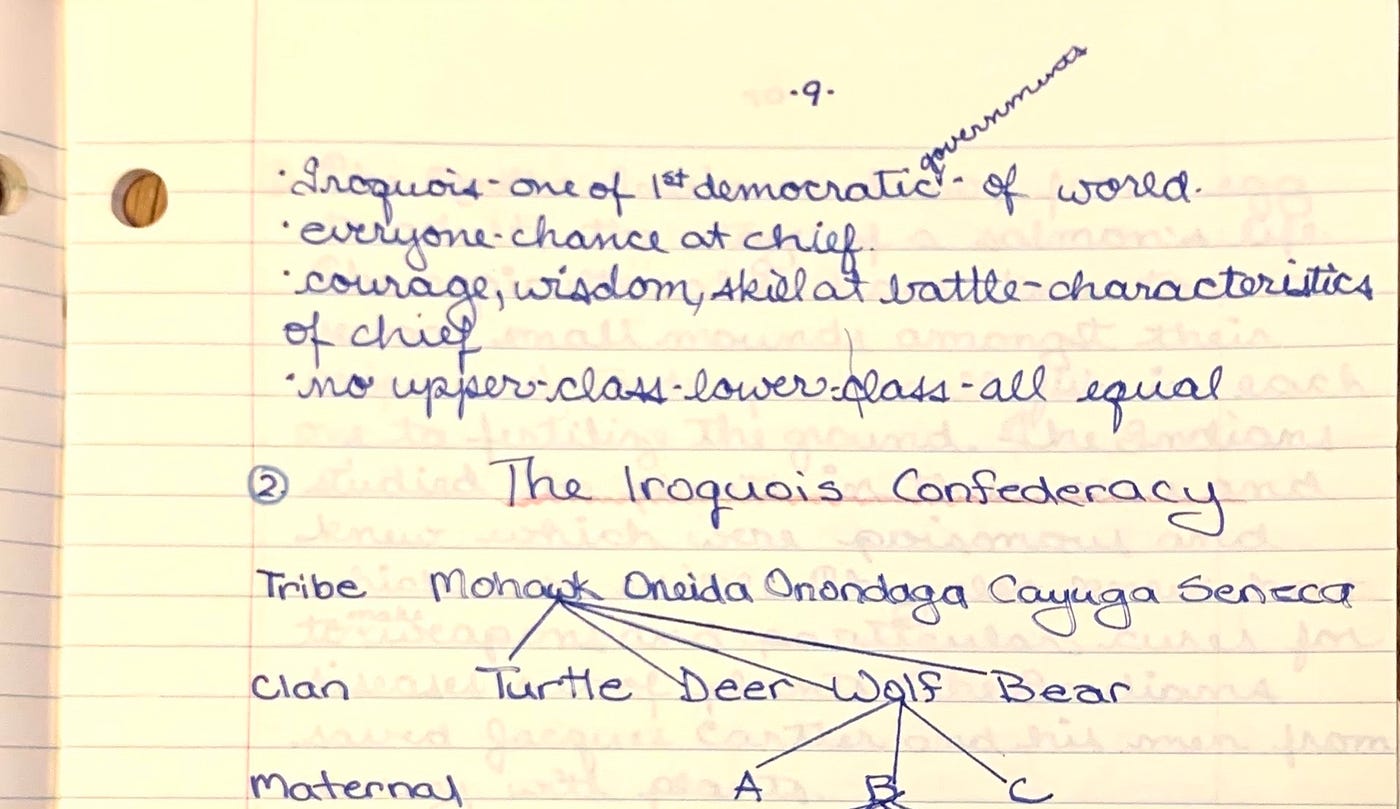 ·9·
·Iroquois- one of 1st democratic governments - of world.
·everyone-chance at chief.
·courage, wisdom, skill at battle-characteristics
of chief
·no upper-class-lower-class-all equal
② The Iroquois Confederacy
Tribe Mohawk Oneida Onondaga Cayuga Seneca
Clan Turtle Deer Wolf Bear
Maternal A B C